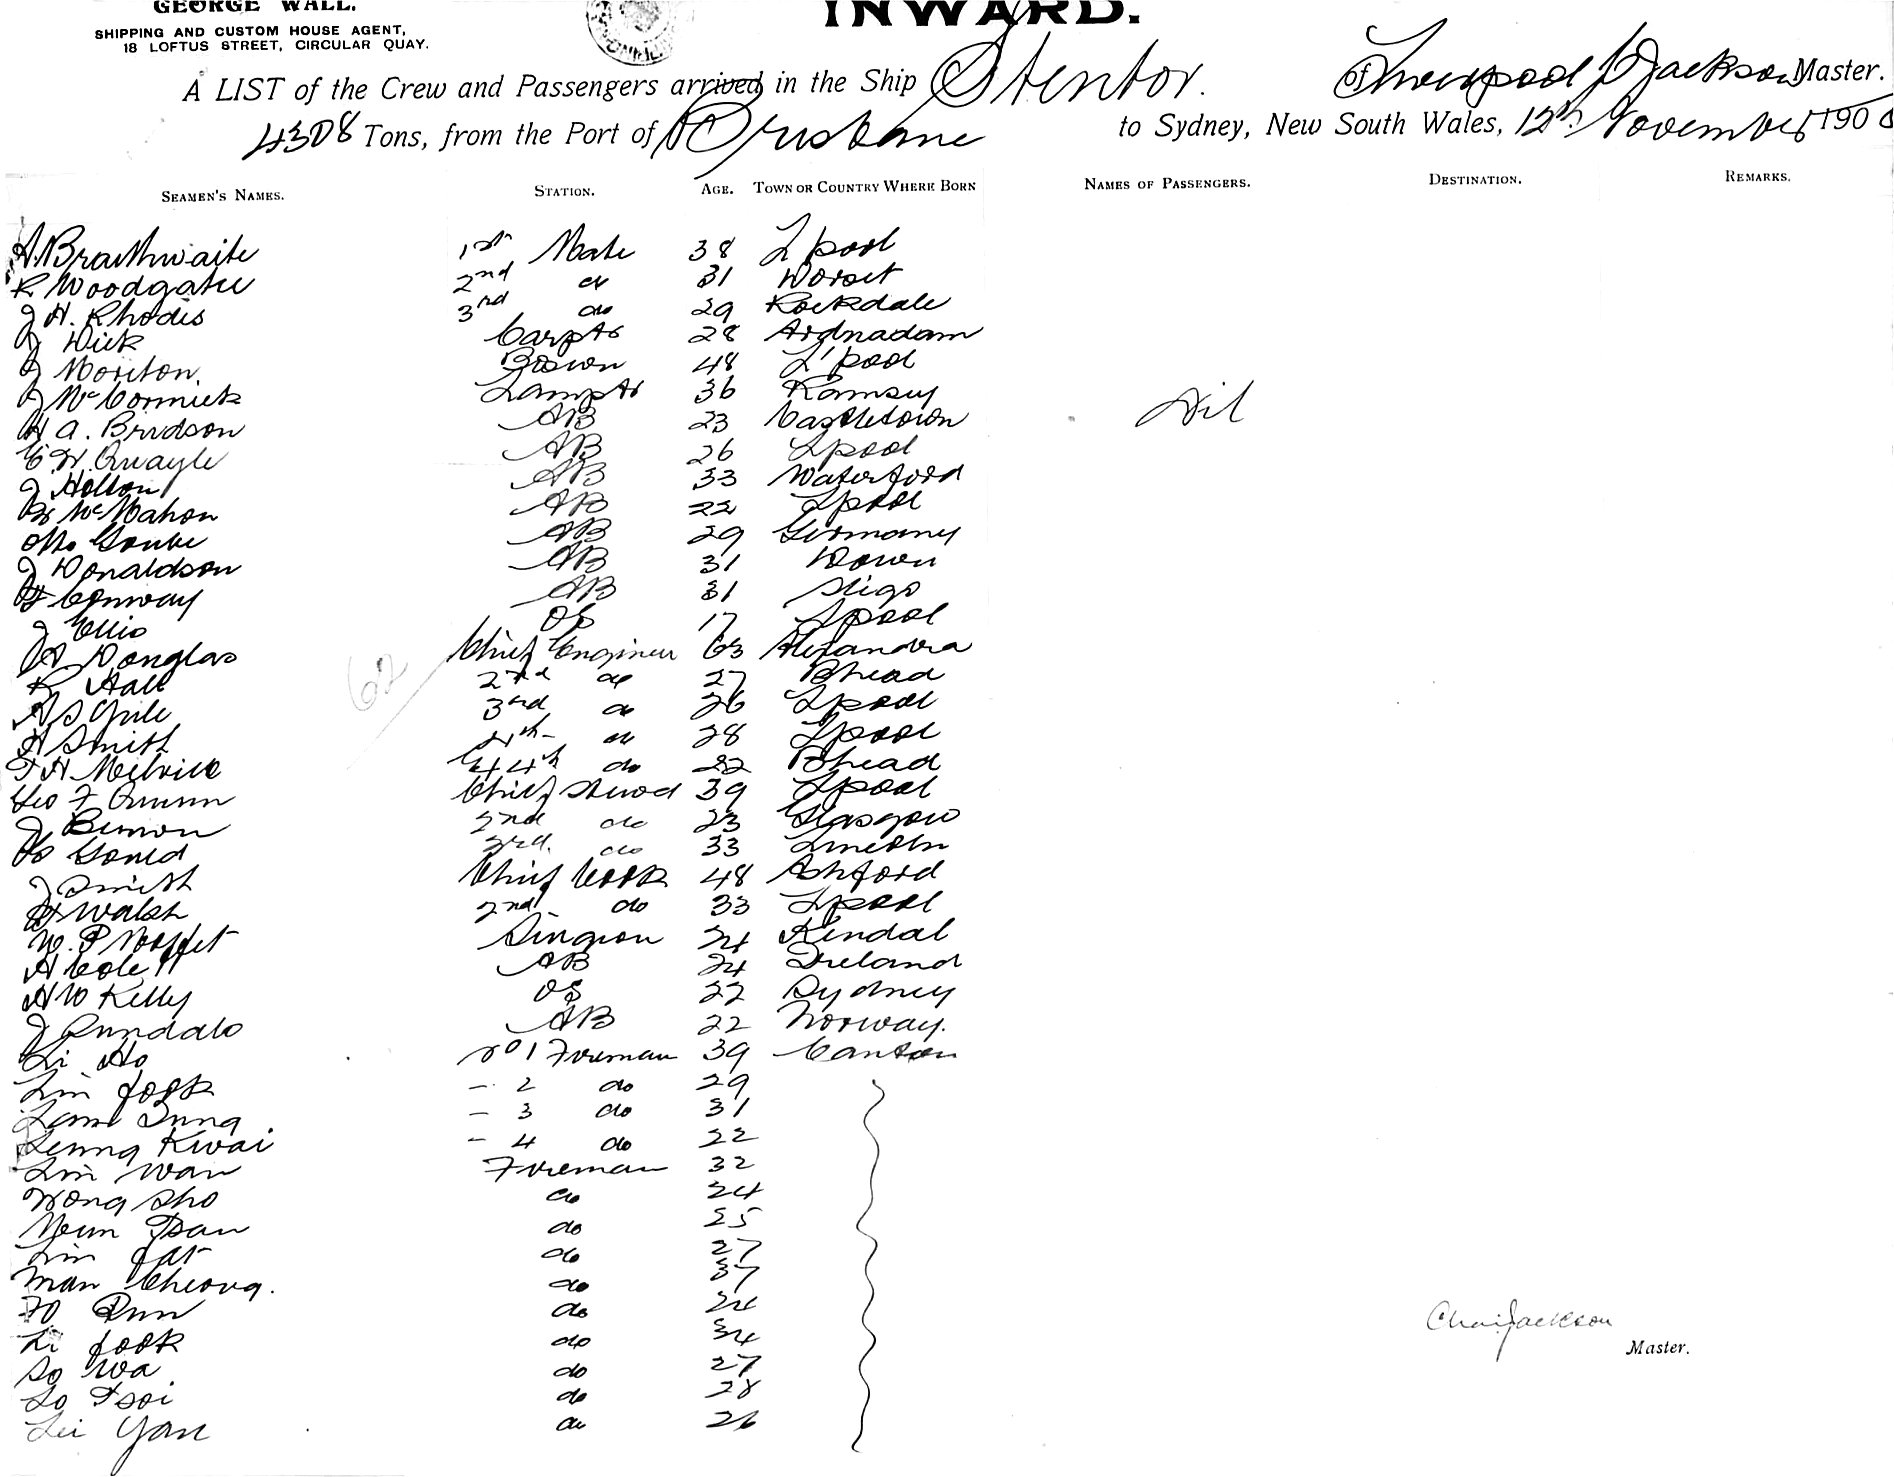 GEORGE WALL.
SHIPPING AND CUSTOM HOUSE AGENT,
18 LOFTUS STREET, CIRCULAR QUAY.
INWARD.
A LIST of the Crew and Passengers arrived in the Ship Stentor. of Liverpool Jackson Master.
4308 Tons, from the Port of Brisbane to Sydney, New South Wales, 12th November 190
SEAMEN'S NAMES. STATION. AGE. TOWN OR COUNTRY WHERE BORN NAMES OF PASSENGERS. DESTINATION. REMARKS.
A. Braithwaite 1st Mate 38 L'pool
R Woodgate 2nd do 31 Dorset
J H. Rhodes 3rd do 29 Rockdale
J Dick Carptr 28 Ardnadam
J Moreton Bosun 48 L'pool
J McCormick Lamptr 36 Ramsey
H A. Bridson AB 23 Castletown Nil
C W Quayle AB 26 Lpool
J Hollon AB 33 Waterford
McMahon AB 22 Lpool
Otto AB 29 Germany
J Donaldson AB 31 Down
Conway AB 31 Sligo
J Ellis OS 17 Lpool
Douglas Chief Engineer 63 Alexandra
R Hall 2nd do 27 Bhead
A S 3rd do 26 Lpool
62
A Smith 4th do 28 Lpool
T H Melville 4th do 22 Bhead
Geo F Quinn Chief Stewd 39 Lpool
J 2nd do 23 Glasgow
Gould 3rd. do 33 Lincoln
J Smith Chief Cook 48 Ashford
Walsh 2nd do 33 Lpool
W. P Moffet Surgeon 24 Kendal
A Cole AB 24 Ireland
A W Kelly OS 22 Sydney
J AB 22 Norway.
Li Ho No 1 Foreman 39 Canton
Lim Fook - 2 do 29
Lam Tung - 3 do 31
Leung Kwai - 4 do 22
Lim Wan Foreman 32
Wong Sho do 24
Tsan do 25
Lim Fat do 27
Man Cheong. do 37
do 24
Li Fook do 34
So Wa do 27
Lo Tsoi do 28
Lei Yau do 26
Chas Jackson
Master.